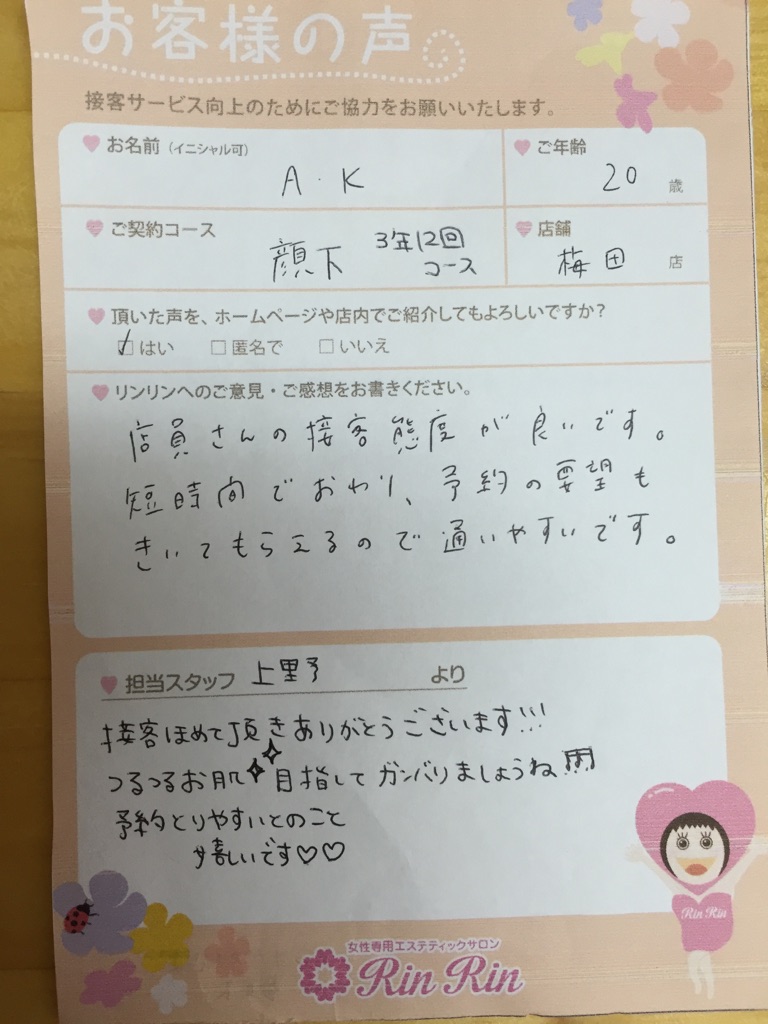 お客様の声
接客サービス向上のためにご協力をお願いいたします。
お名前（イニシャル可）
A・K
ご年齢
20 歳
ご契約コース
顔下 3年12回
コース
店舗
梅田 店
頂いた声を、ホームページや店内でご紹介してもよろしいですか？
はい □匿名で □いいえ
リンリンへのご意見・ご感想をお書きください。
店員さんの接客態度が良いです。
短時間でおわり、予約の要望も
きいてもらえるので通いやすいです。
担当スタッフ 上野 より
接客ほめて頂きありがとうございます!!!
つるつるお肌✧✧目指してガンバりましょうね!!!
予約とりやすいとのこと
嬉しいです♡♡
Rin Rin
女性専用エステティックサロン
Rin Rin